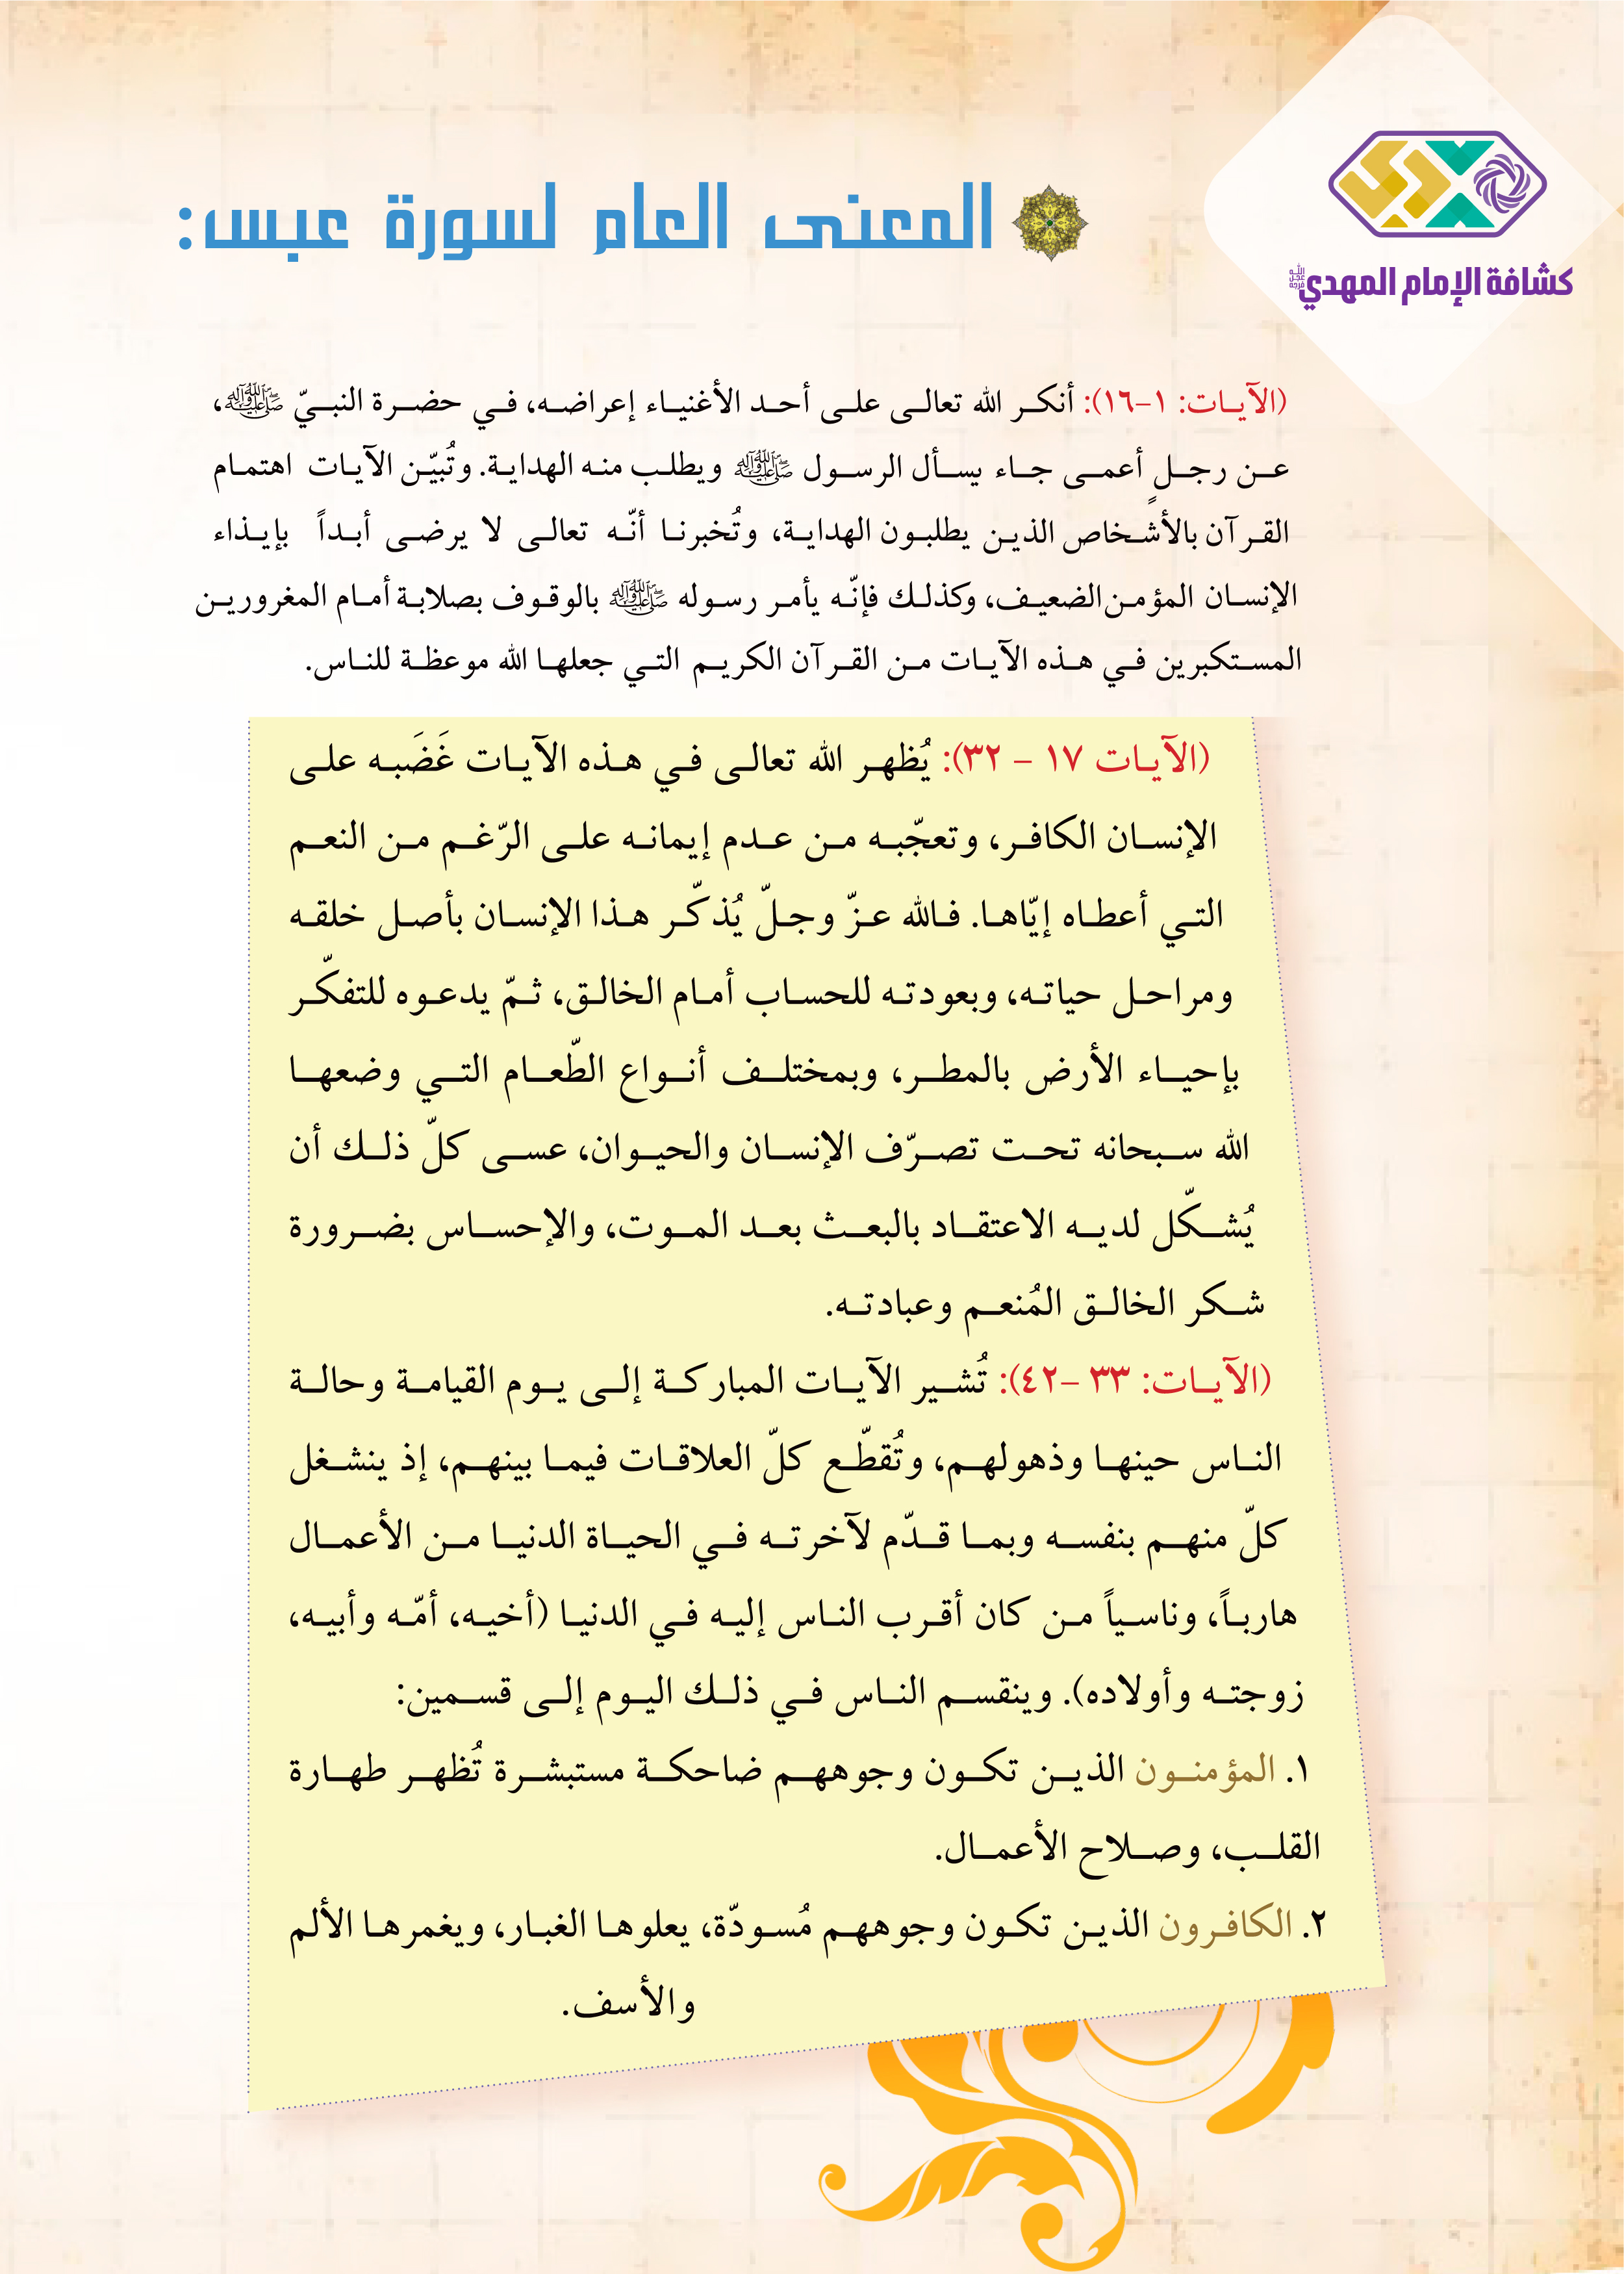 كشافة الإمام المهدي
المعنى العام لسورة عبس:
(الآيات: ١-١٦): أنكر الله تعالى على أحد الأغنياء إعراضه، في حضرة النبيّ ﷺ،
عن رجلٍ أعمى جاء يسأل الرسول ﷺ ويطلب منه الهداية. وتُبيّن الآيات اهتمام
القرآن بالأشخاص الذين يطلبون الهداية، وتُخبرنا أنّه تعالى لا يرضى أبداً بإيذاء
الإنسان المؤمن الضعيف، وكذلك فإنّه يأمر رسوله ﷺ بالوقوف بصلابة أمام المغرورين
المستكبرين في هذه الآيات من القرآن الكريم التي جعلها الله موعظة للناس.
(الآيات ١٧ – ٣٢): يُظهر الله تعالى في هذه الآيات غَضَبه على
الإنسان الكافر، وتعجّبه من عدم إيمانه على الرّغم من النعم
التي أعطاه إيّاها. فالله عزّ وجلّ يُذكّر هذا الإنسان بأصل خلقه
ومراحل حياته، وبعودته للحساب أمام الخالق، ثمّ يدعوه للتفكّر
بإحياء الأرض بالمطر، وبمختلف أنواع الطّعام التي وضعها
الله سبحانه تحت تصرّف الإنسان والحيوان، عسى كلّ ذلك أن
يُشكّل لديه الاعتقاد بالبعث بعد الموت، والإحساس بضرورة
شكر الخالق المُنعم وعبادته.
(الآيات: ٣٣ –٤٢): تُشير الآيات المباركة إلى يوم القيامة وحالة
الناس حينها وذهولهم، وتُقطّع كلّ العلاقات فيما بينهم، إذ ينشغل
كلّ منهم بنفسه وبما قدّم لآخرته في الحياة الدنيا من الأعمال
هارباً، وناسياً من كان أقرب الناس إليه في الدنيا (أخيه، أمّه وأبيه،
زوجته وأولاده). وينقسم الناس في ذلك اليوم إلى قسمين:
١. المؤمنون الذين تكون وجوههم ضاحكة مستبشرة تُظهر طهارة
القلب، وصلاح الأعمال.
٢. الكافرون الذين تكون وجوههم مُسودّة، يعلوها الغبار، ويغمرها الألم
والأسف.